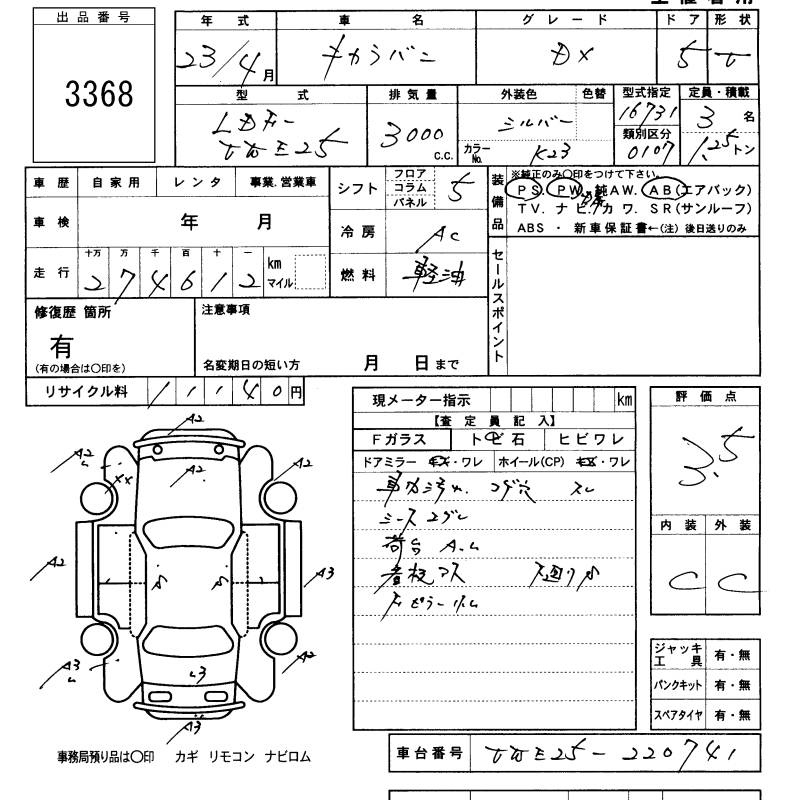 出品番号
3368
年式 車名 グレード ドア 形状
23/4月 キャラバン DX 5 V
型式 排気量 外装色 色替 型式指定 定員・積載
LDF-VWE25 3000 C.C. シルバー 16731 3名
カラーNo. K23 類別区分 0107 1.25トン
車歴 自家用 レンタ 事業.営業車
車検 年 月
走行 十万 万 千 百 十 一
274612 km マイル
シフト フロア コラム パネル 5
冷房 AC
燃料 軽油
装備品 ※純正のみ○印をつけて下さい。
PS. PW. 純AW. AB(エアバック)
TV. ナビ. カワ. SR(サンルーフ)
ABS ・ 新車保証書←(注) 後日送りのみ
セールスポイント
修復歴 箇所
有
(有の場合は○印を)
注意事項
名変期日の短い方 月 日まで
リサイクル料 11140円
現メーター指示 km
【査定員記入】
Fガラス トビ石 ヒビワレ
ドアミラー キズ・ワレ ホイール(CP) キズ・ワレ
シートコゲ
荷台 A.ム
評価点
3.5
内装 外装
C C
A2
A2 ム
A2
A2
XX
A2
A3
A3 ム
A2
A3
ジャッキ工具 有・無
パンクキット 有・無
スペアタイヤ 有・無
事務局預り品は○印 カギ リモコン ナビロム
車台番号 VWE25-220741